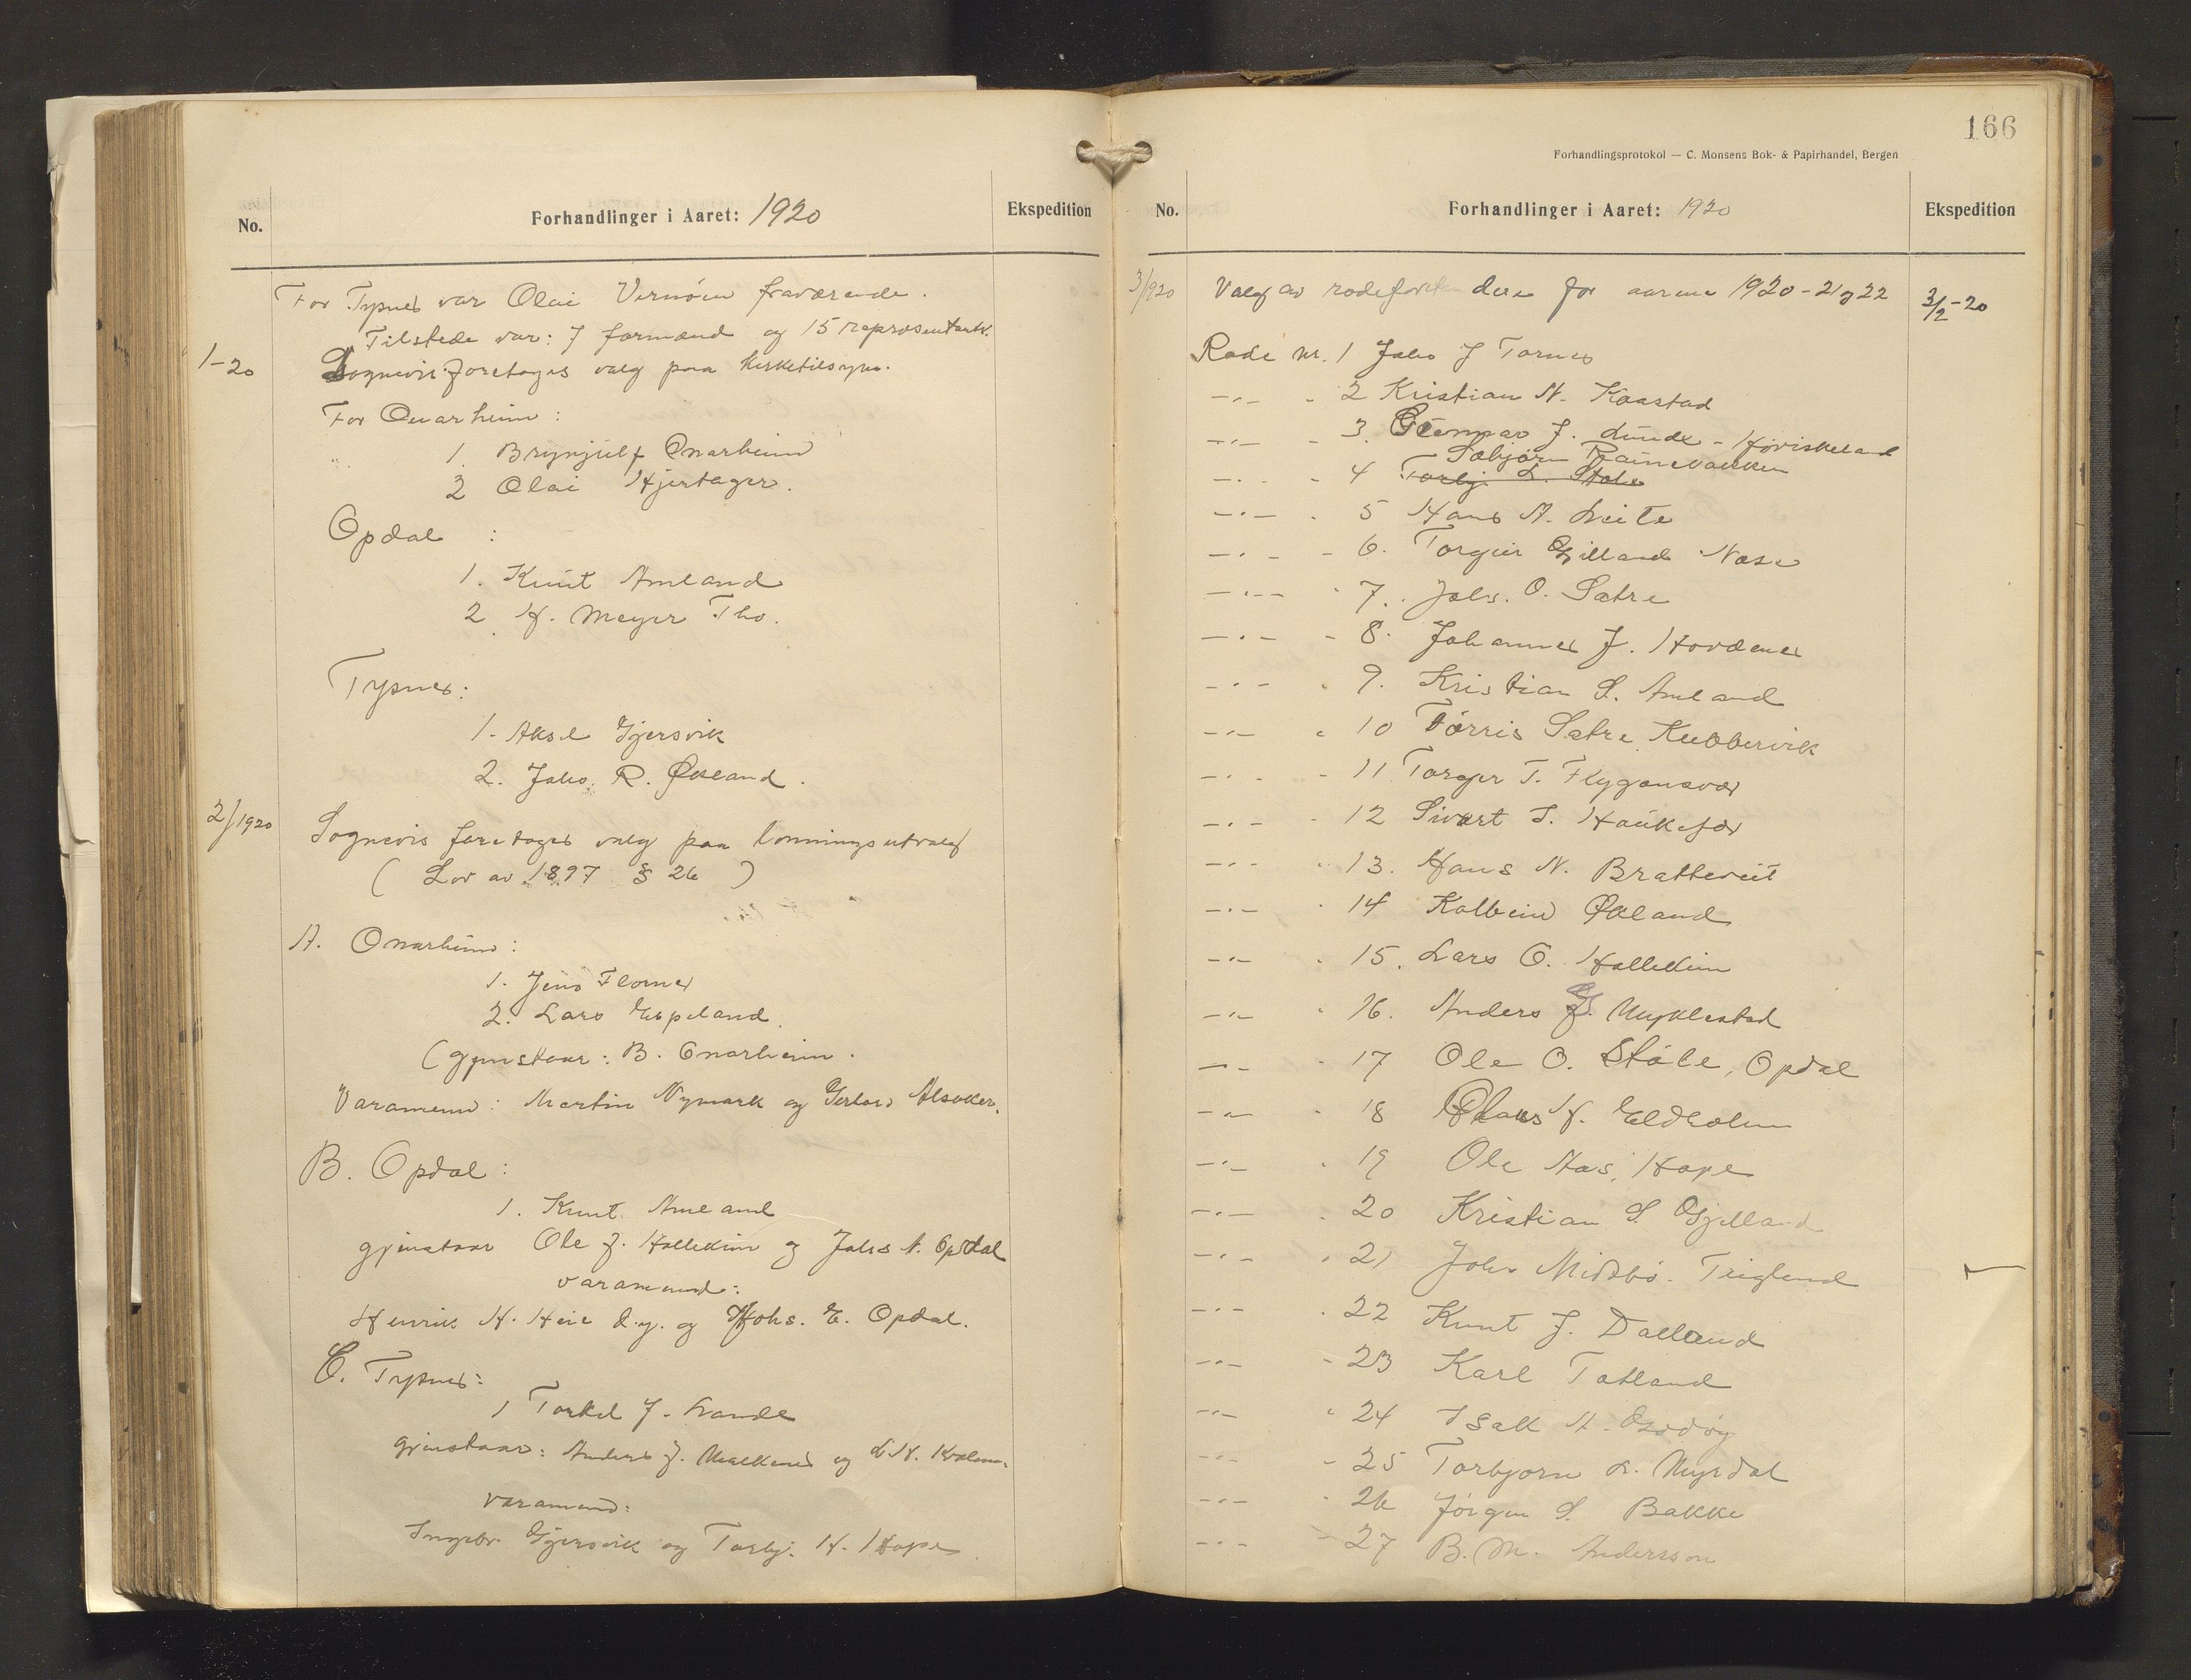 No.
Forhandlinger i Aaret: 1920
Ekspedition
For Tysnes var Olai Vernøien fraværende.
Tilstede var: 7 formænd og 15 repræsentantr.
1-20
Sognevis foretoges valg paa kirketilsyn.
For Onarheim:
1. Brynjulf Onarheim
2 Olai Hjertager.
Opdal:
1. Knut Amland
2. H. Meyer Tho.
Tysnes:
1. Aksel Gjersvik
2. Johs. R. Økland.
2/1920
Sognevis foretoges valg paa lønningsutvalg
(Lov av 1897 § 26)
A. Onarheim:
1. Jens Flornes
2. Lars Espeland.
(gjenstaar: B. Onarheim.
Varamenn: Martin Nymark og Gerhard Alsaker.
B. Opdal:
1. Knut Amland
gjenstaar Ole J. Hallekim og Johs N. Opdal
varamend:
Henrik H. Heie d.y. og Johs. E. Opdal.
C. Tysnes:
1 Torkel J. Lande
gjenstaar: Anders J. og L. N.
varamend:
Ingebr. Gjersvik og Torbj. H. Hope.
166
Forhandlingsprotokol — C. Monsens Bok- & Papirhandel, Bergen
No.
Forhandlinger i Aaret: 1920
Ekspedition
3/1920
Valg av rodeforstandere for aarene 1920-21 og 22
3/2-20
Rode nr. 1 Johs J Tornes
-"- - 2 Kristian N. Kaastad
-"- - 3. Gunnar J. Lunde - Høviskeland
Sæbjørn
-"- - 4 Torbj. L. Stole
-"- - 5 Hans A. Leite
-"- - 6. Torgeir Gjilland Nese
-"- - 7. Johs. O. Sætre
-"- - 8. Johannes J. Hovdenes
-"- - 9. Kristian S. Amland
-"- - 10 Tørris Sætre Kubbervik
-"- - 11 Torger T. Flygansvær
-"- - 12 Sivert S. Haukefær
-"- - 13. Hans N. Bratteveit
-"- - 14 Kolbein Økland
-"- - 15. Lars O. Hallekim
-"- - 16. Anders J. Myklestad
-"- - 17 Ole O. Støle, Opdal
-"- - 18 H. Eldholm
-"- - 19 Ole Aas, Hope
-"- - 20 Kristian S. Gjelland
-"- - 21 Johs Midtbø. Teigland
-"- - 22 Knut J. Dalland
-"- - 23 Karl Tatland
-"- - 24 Isak A.
-"- - 25 Torbjørn L. Myrdal
-"- - 26 Jørgen S. Bakke
-"- - 27 B. M. Andersson